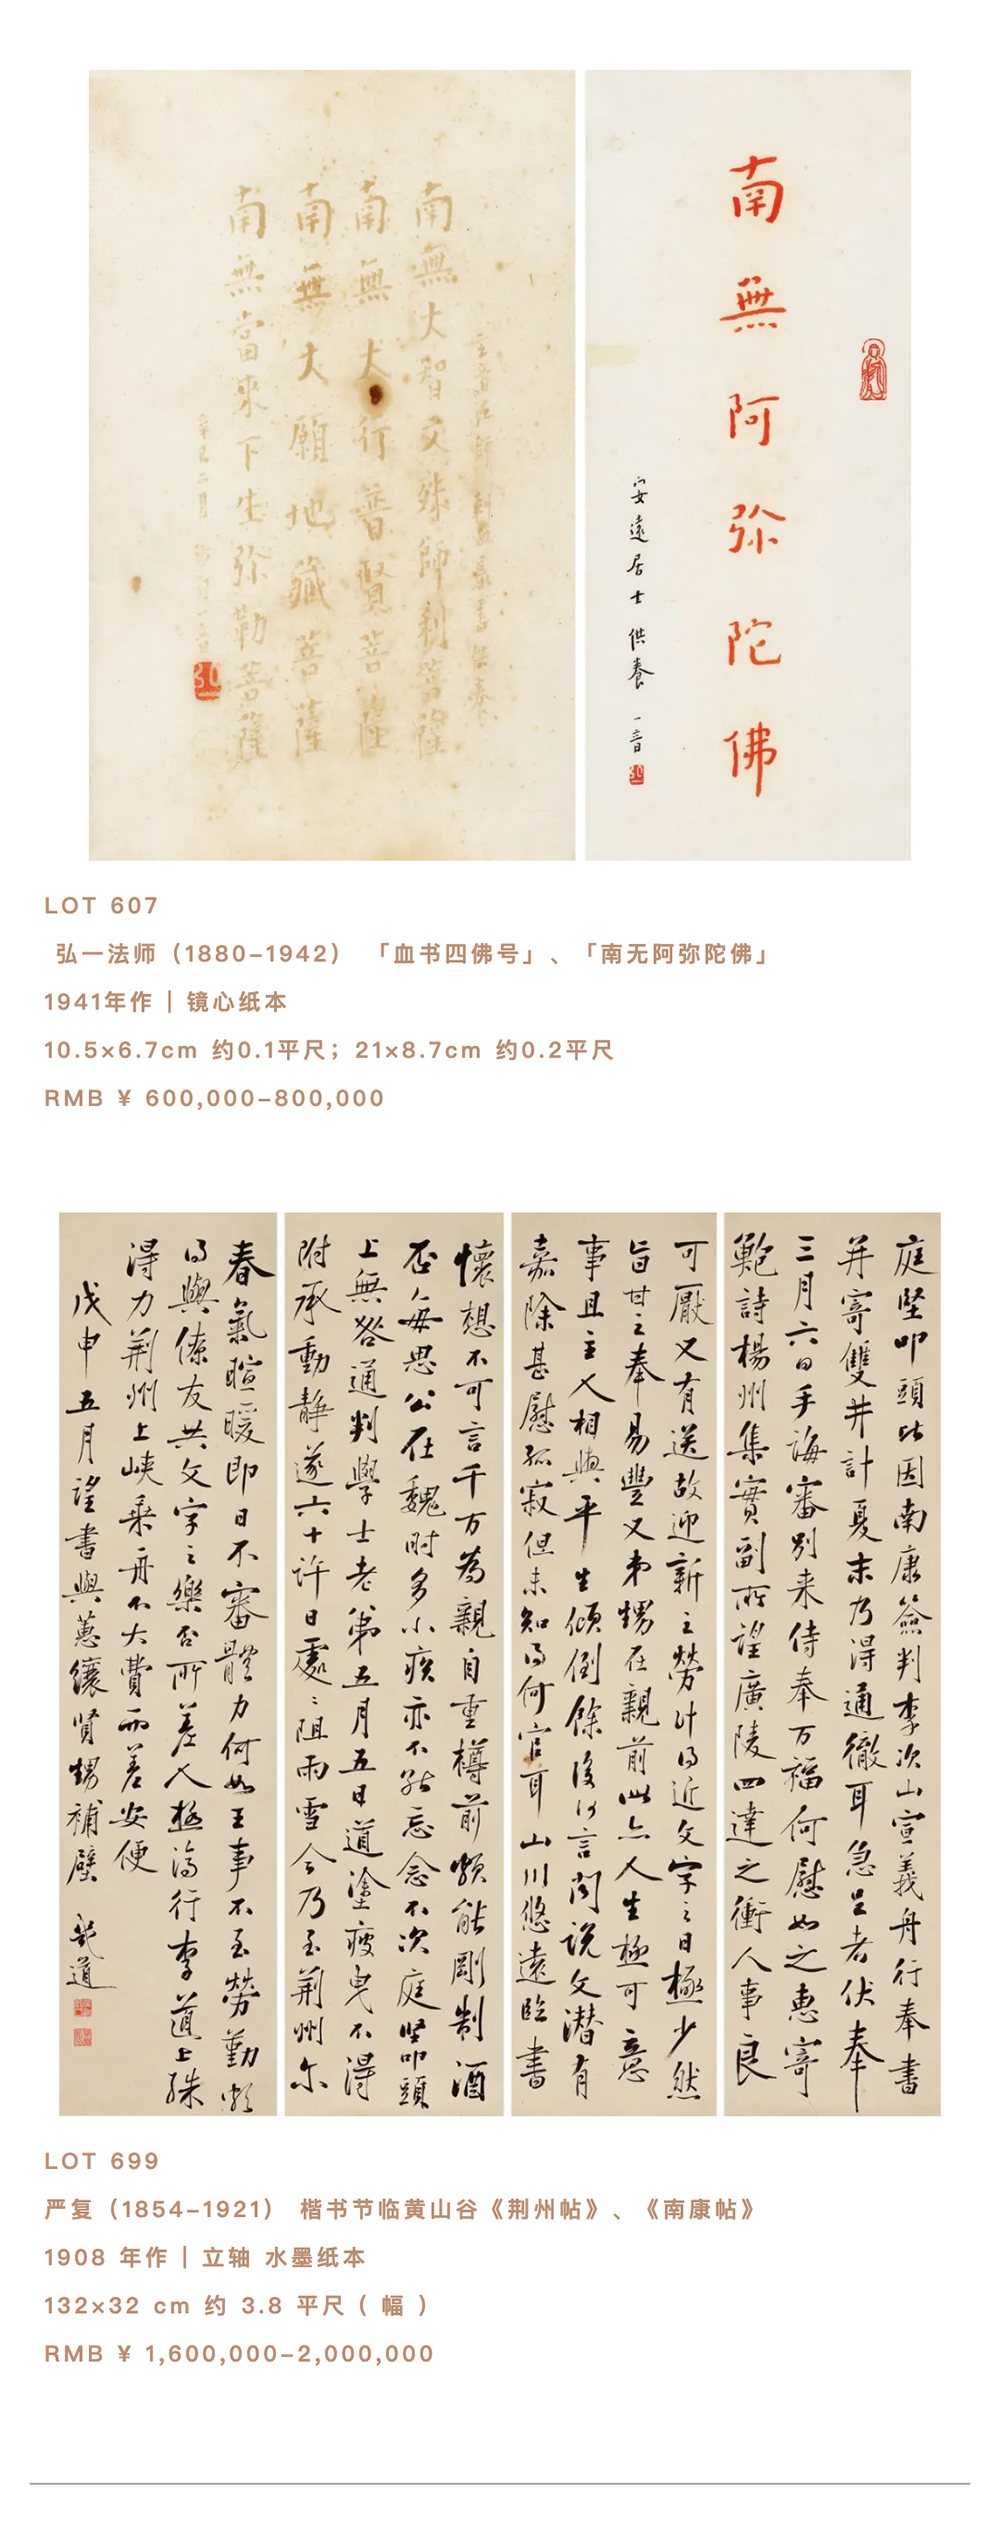 南無阿弥陀佛
安遠居士供養 一音
南無大智文殊師利菩薩
南無大行普賢菩薩
南無大願地藏菩薩
南無當來下生弥勒菩薩
辛巳二月
LOT 607
弘一法师（1880-1942） 「血书四佛号」、「南无阿弥陀佛」
1941年作 | 镜心纸本
10.5×6.7cm 约0.1平尺；21×8.7cm 约0.2平尺
RMB ¥ 600,000-800,000
庭堅叩頭比因南康簽判李次山宣義舟行奉書
并寄雙井計夏末乃得通徹耳急足者伏奉
三月六日手誨審別来侍奉万福何慰如之惠寄
鮑詩楊州集實副所望廣陵四達之衝人事良
可厭又有送故迎新之勞計得近文字之日極少然
旨甘之奉易豐又弟甥在親前此亦人生極可意
事且主人相與平生傾倒餘復何言閤說文潛有
嘉除甚慰孤寂但未知得何官耳山川悠遠臨書
懷想不可言千万為親自重樽前頻能剛制酒
否每思公在魏时多小疾亦不能忘念不次庭堅叩頭
上無咎通判學士老弟五月五日道塗疲曳不得
附承動静遂六十許日處處阻雨雪今乃至荆州尔
春氣暄暖即日不審體力何如王事不至勞勤頗
得與僚友共文字之樂否所差人極濟行李道上殊
得力荆州上峡乘舟不大費而差安便
戊申五月望書與蕙纕賢甥補壁 幾道
LOT 699
严复（1854-1921） 楷书节临黄山谷《荆州帖》、《南康帖》
1908 年作 | 立轴 水墨纸本
132×32 cm 约 3.8 平尺（ 幅 ）
RMB ¥ 1,600,000-2,000,000